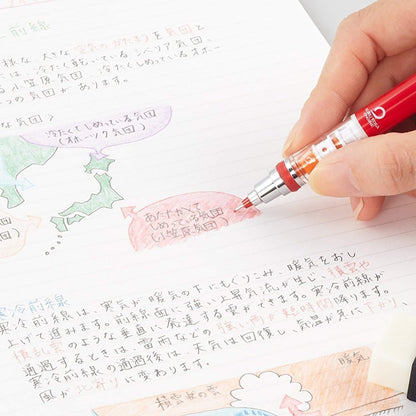 前線
様な大きな空気のかたまりを気団と
冷たく乾いているシベリア気団、
冷たくしめっているオホー
小笠原気団
つの気団があります。
な気団〉
冷たくてしめっている気団
(オホーツク気団)
気団
あたたかくて
しめっている気団
(小笠原気団)
寒冷前線
寒冷前線は、寒気が暖気の下にもぐりこみ、暖気をおし
上げて進みます。前線面に強い上昇気流が生じ、積雲や
積乱雲のような垂直に発達する雲ができます。寒冷前線が
通過するときは、雷雨などの強い雨が短時間降ります。
寒冷前線の通過後は、天気は回復し、気温が急に下がり、
風が北寄りに変わります。
暖気
積雲状の雲